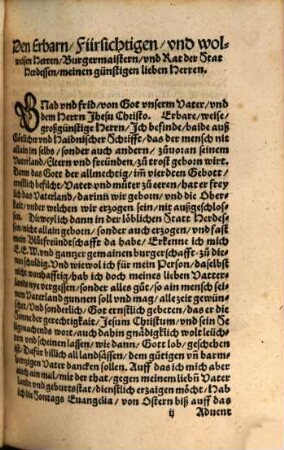 Den Erbarn/ Fürsichtigen/ vnd wol-
weisen Herren/ Burgermaistern/ vnd Rat der Stat
Herdessen/ meinen günstigen lieben Herren.
GNad vnd frid/ von Got vnserm Vater/ vnd
dem Herrn Jhesu Christo. Erbare/ weise/
großgünstige Herrn/ Jch befinde/ baide auß
Götlicher vnd Haidnischer Schrifft/ das der mensch nit
allain jm selbs/ sondern auch andern/ zuuoraus seinem
Vaterland/ Eltern vnd freünden/ zu trost geborn wirt.
Denn das Gott der allmechtig/ im vierdten Gebott/
ernstlich befilcht/ Vater vnd muter zu eeren/ hat er frey-
lich das Vaterland/ darinn wir geborn/ vnd die Ober-
kait/ vnder welchen wir erzogen sein/ nit außgeschlos-
sen. Dieweyl ich dann in der löblichen Statt Herdes-
sen nicht allain geborn/ sonder auch erzogen/ vnd fast
mein Blutfreündtschafft da habe/ Erkenne ich mich
E.E.W. vnd gantzer gemainen burgerschafft/ zu die-
nen schuldig. Vnd wiewol ich für mein Person/ daselbst
nicht wonhafftig/ hab ich doch meines lieben Vatter-
lands nye vergessen/ sonder alles güts/ so ain mensch sei-
nem Vaterland gunnen soll vnd mag/ alle zeit gewün-
schet/ Vnd sonderlich/ Got ernstlich gebeten/ das er die
Sonne der gerechtigkait/ Jesum Christum/ vnd sein
seligmachends wort/ auch dahin gnädigklich wolt leüch-
ten vnd scheinen lassen/ wie dann/ Gott lob/ geschehen
ist. Dafür billich all landsässen/ dem gütigen vnd barm-
hertzigen Vater dancken sollen. Auff das ich mich aber
auch ain mal/ mit der that/ gegen meinem liebn Vater
lande vnd geburtsstat/ dienstlich erzaigen möcht/ Hab
ich die Sontags Euangelia/ von Ostern biß auff das
ij Aduent